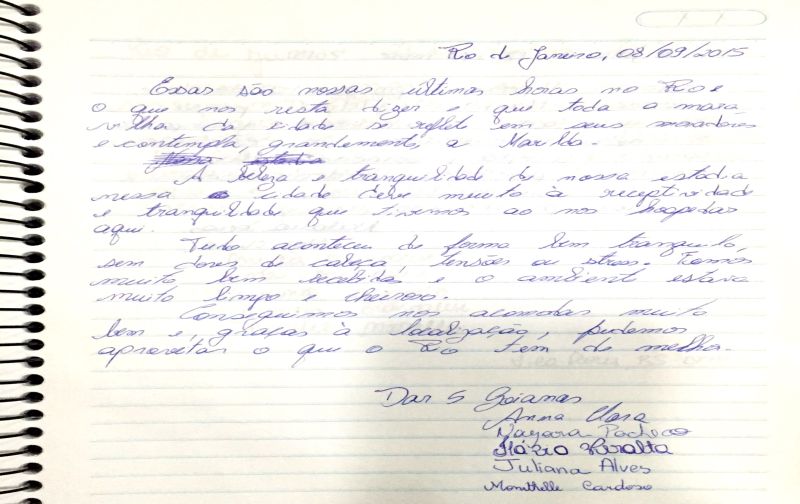 Rio de Janeiro, 08/09/2015
Essas são nossas últimas horas no Rio e
o que nos resta dizer e que toda a mara
vilha da cidade se reflete em seus moradores
e contempla, grandemente, a Marilda.
A beleza e tranquilidade de nossa estadia
nessa cidade deve muito à receptividade
e tranquilidade que tivemos ao nos hospedar
aqui.
Tudo aconteceu de forma bem tranquila,
sem dores de cabeça, tensões ou stress. Fomos
muito bem recebidas e o ambient estava
muito limpo e cheiroso.
Conseguimos nos acomodar muito
bem e, graças à localização, pudemos
aproveitar o que o Rio tem de melhor.
Das 5 Goianas
Anna Clara
Nayara Pacheco
Peralta
Juliana Alves
Cardoso